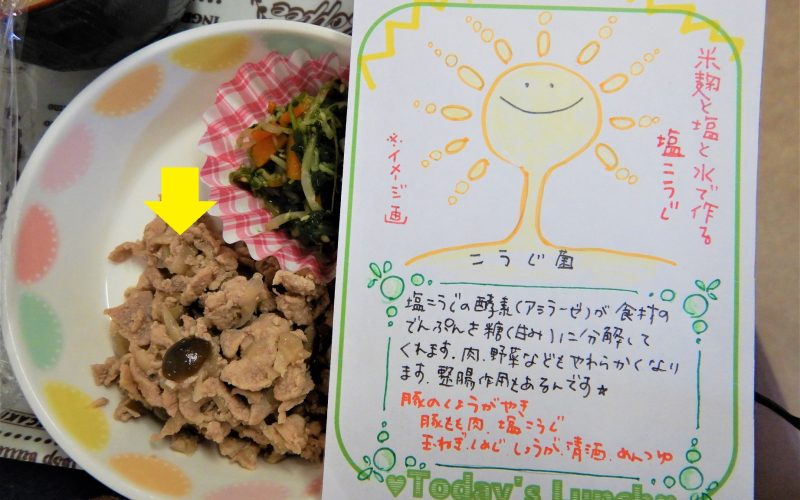 米麹と塩と水で作る
塩こうじ
※イメージ画
こうじ菌
塩こうじの酵素(アミラーゼ)が食材の
でんぷんを糖(甘み)に分解して
くれます。肉、野菜などもやわらかくなり
ます。整腸作用もあるんです☆
豚のしょうがやき
豚もも肉、塩こうじ
玉ねぎ、しめじ、しょうが、清酒、めんつゆ
♥Today's Lunch